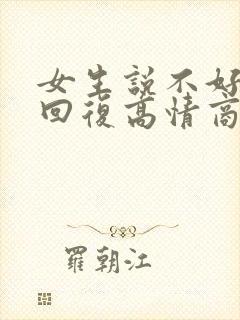 女生説不好
回復高情商
羅朝江